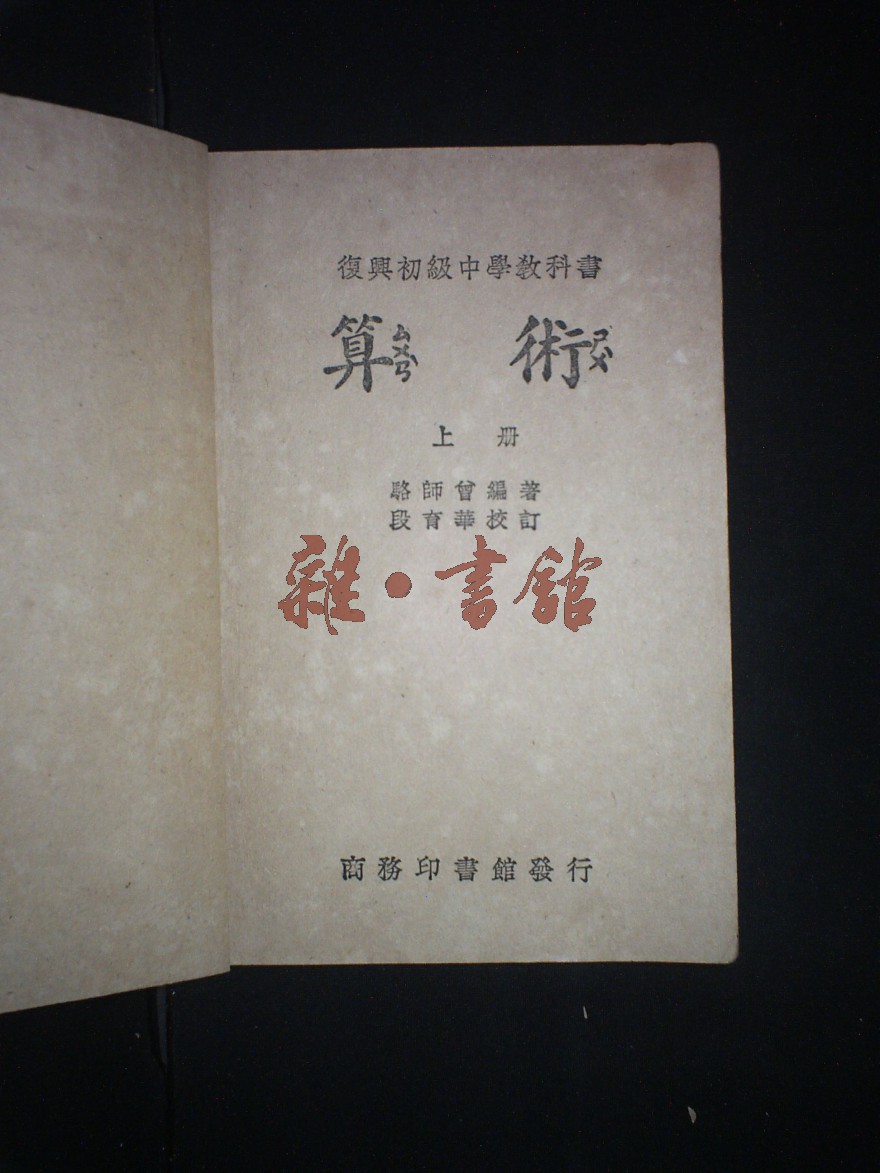 復興初級中學教科書
算ㄙㄨㄢˋ 術ㄕㄨˋ
上册
駱師曾編著
段育華校訂
雜·書館
商務印書館發行